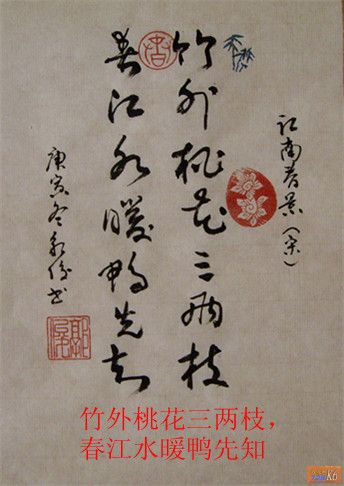 江南春景（宋）
竹外桃花三两枝
春江水暖鸭先知
庚寅冬 书
竹外桃花三两枝，
春江水暖鸭先知
K6